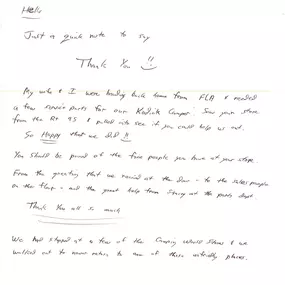 Hello
Just a quick note to say
Thank You !!
My wife & I were heading back home from FLA & needed
a few repair parts for our Kodiak Camper. Saw your store
from the Rt 95 & pulled into see if you could help us out.
So Happy that we did !!
You should be proud of the fine people you have at your store.
From the greeting that we received at the door - to the sales people
on the floor - and the great help from Stacy at the parts dept.
Thank You all so much
We had stopped at a few of the Camping World Stores & we
walked out to never return to one of those unfriendly places.